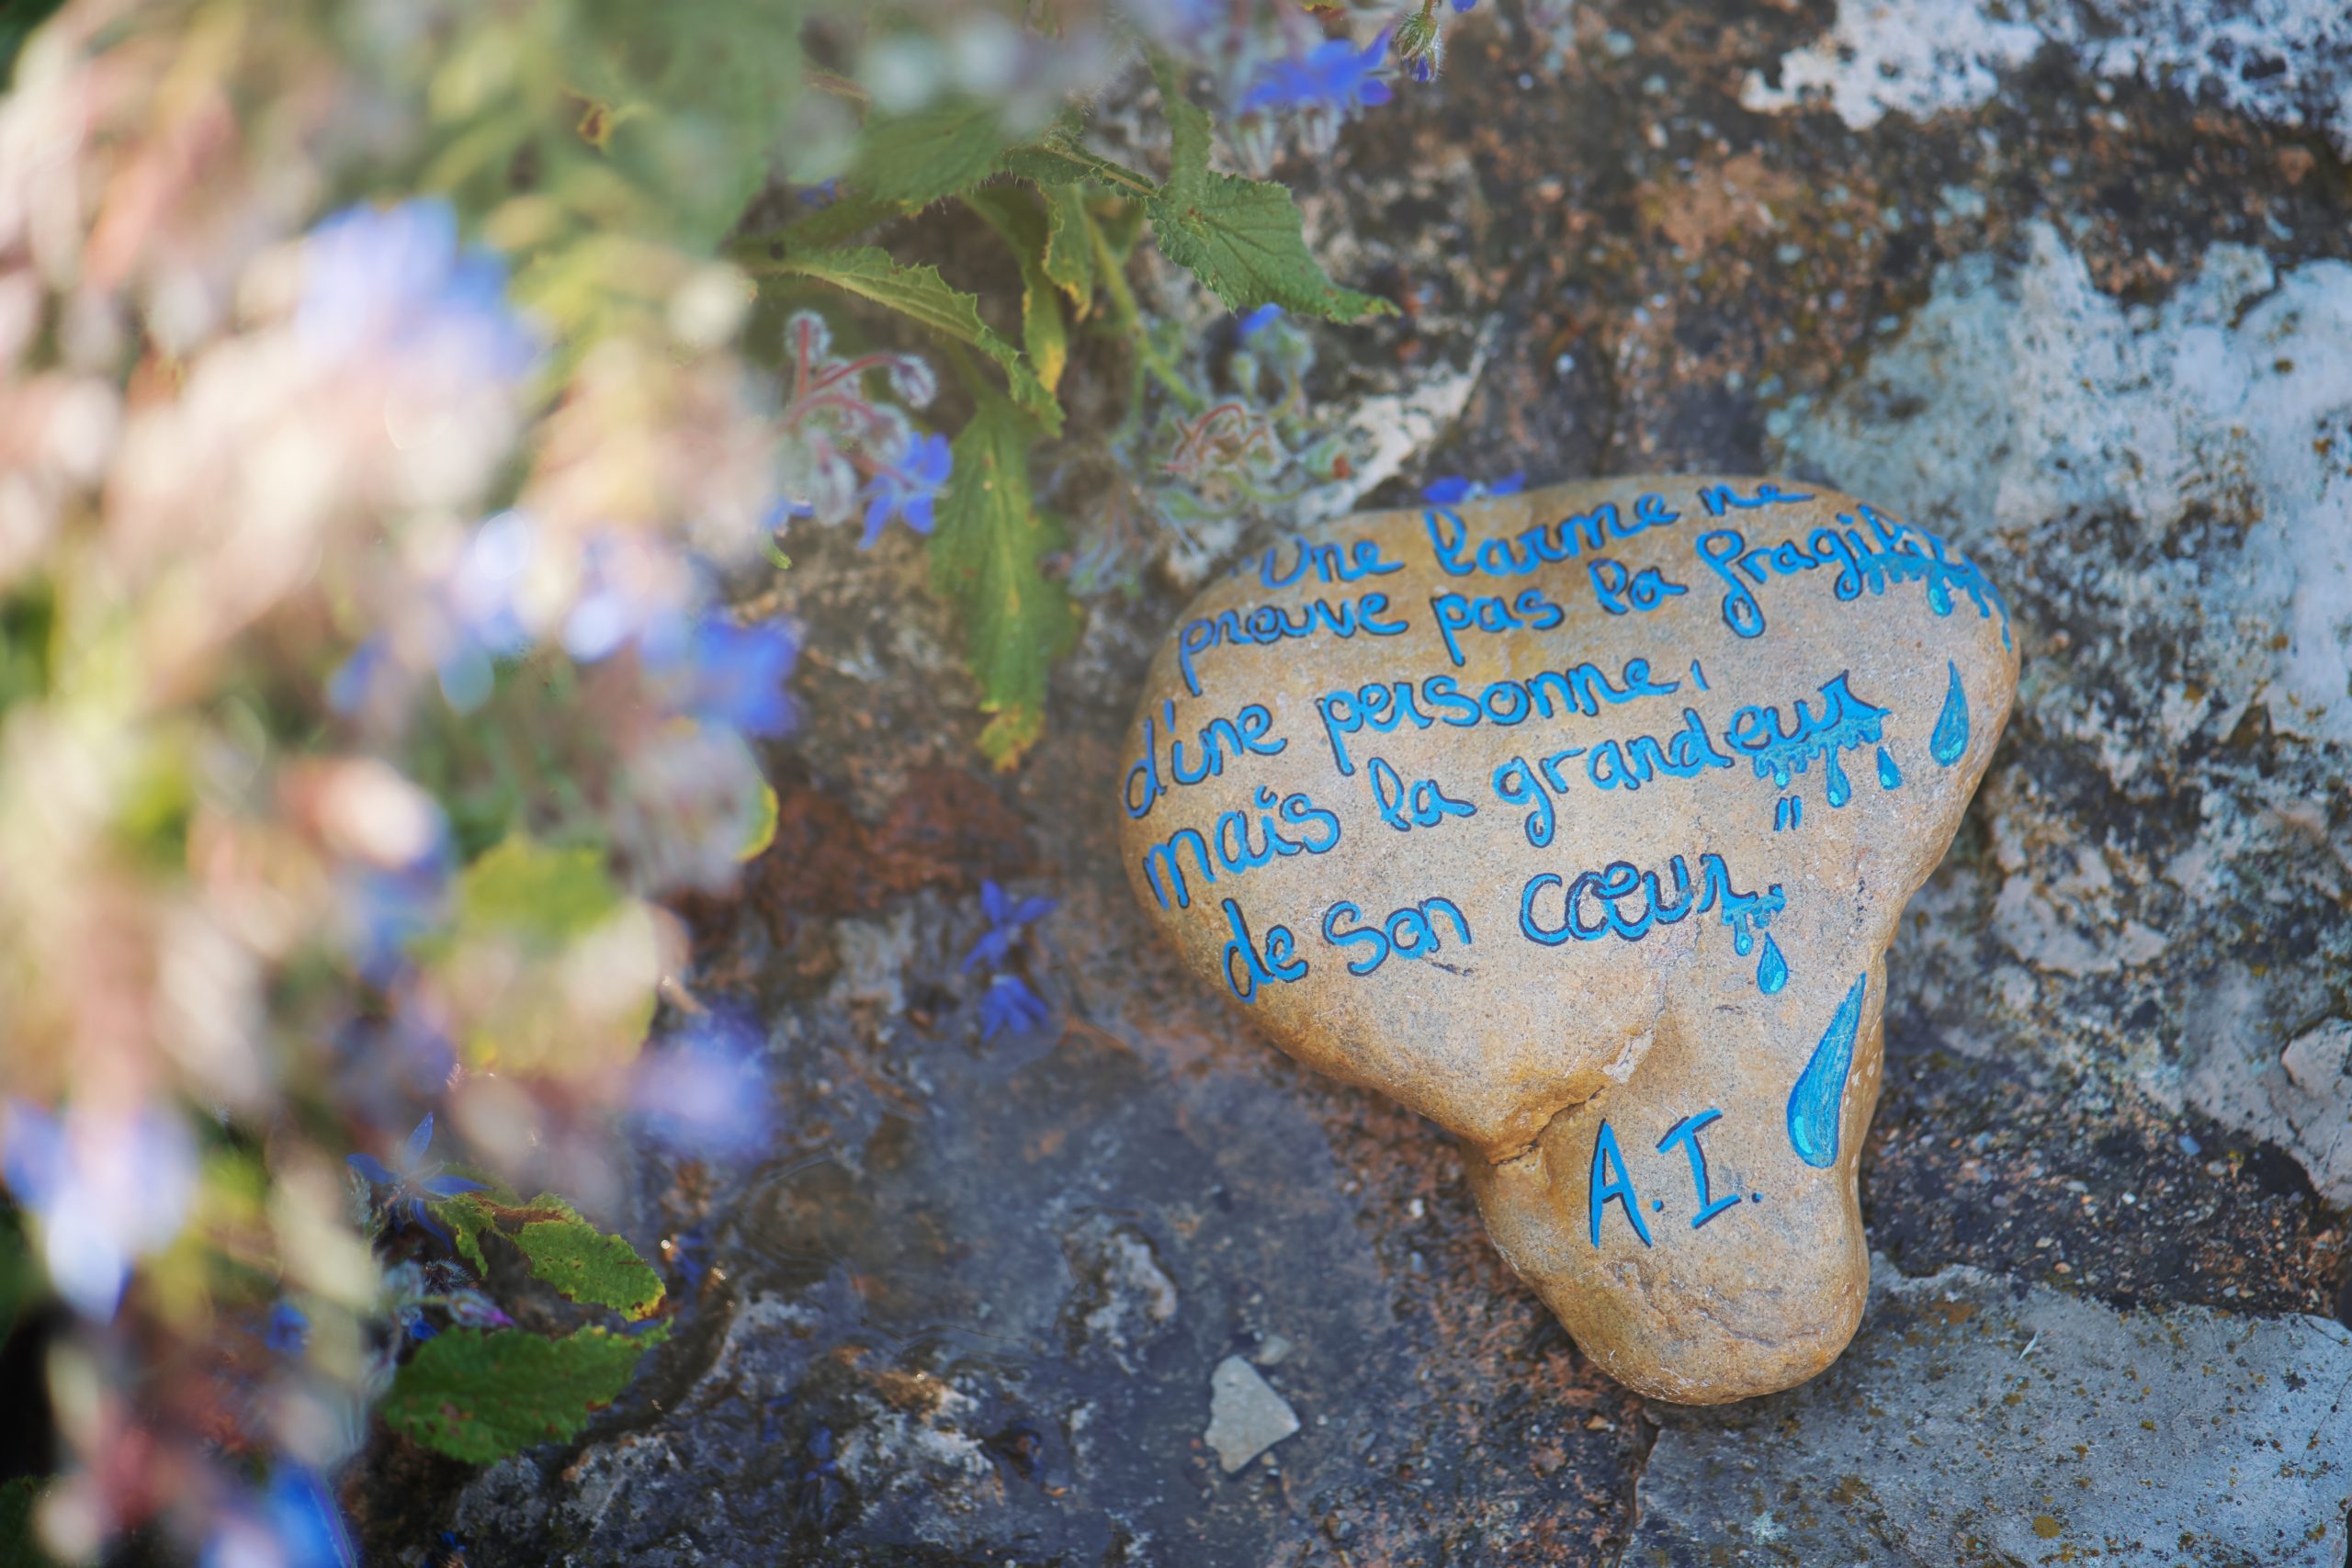 "Une larme ne
prouve pas la fragilité
d'une personne,
mais la grandeur
de son cœur."
A.I.